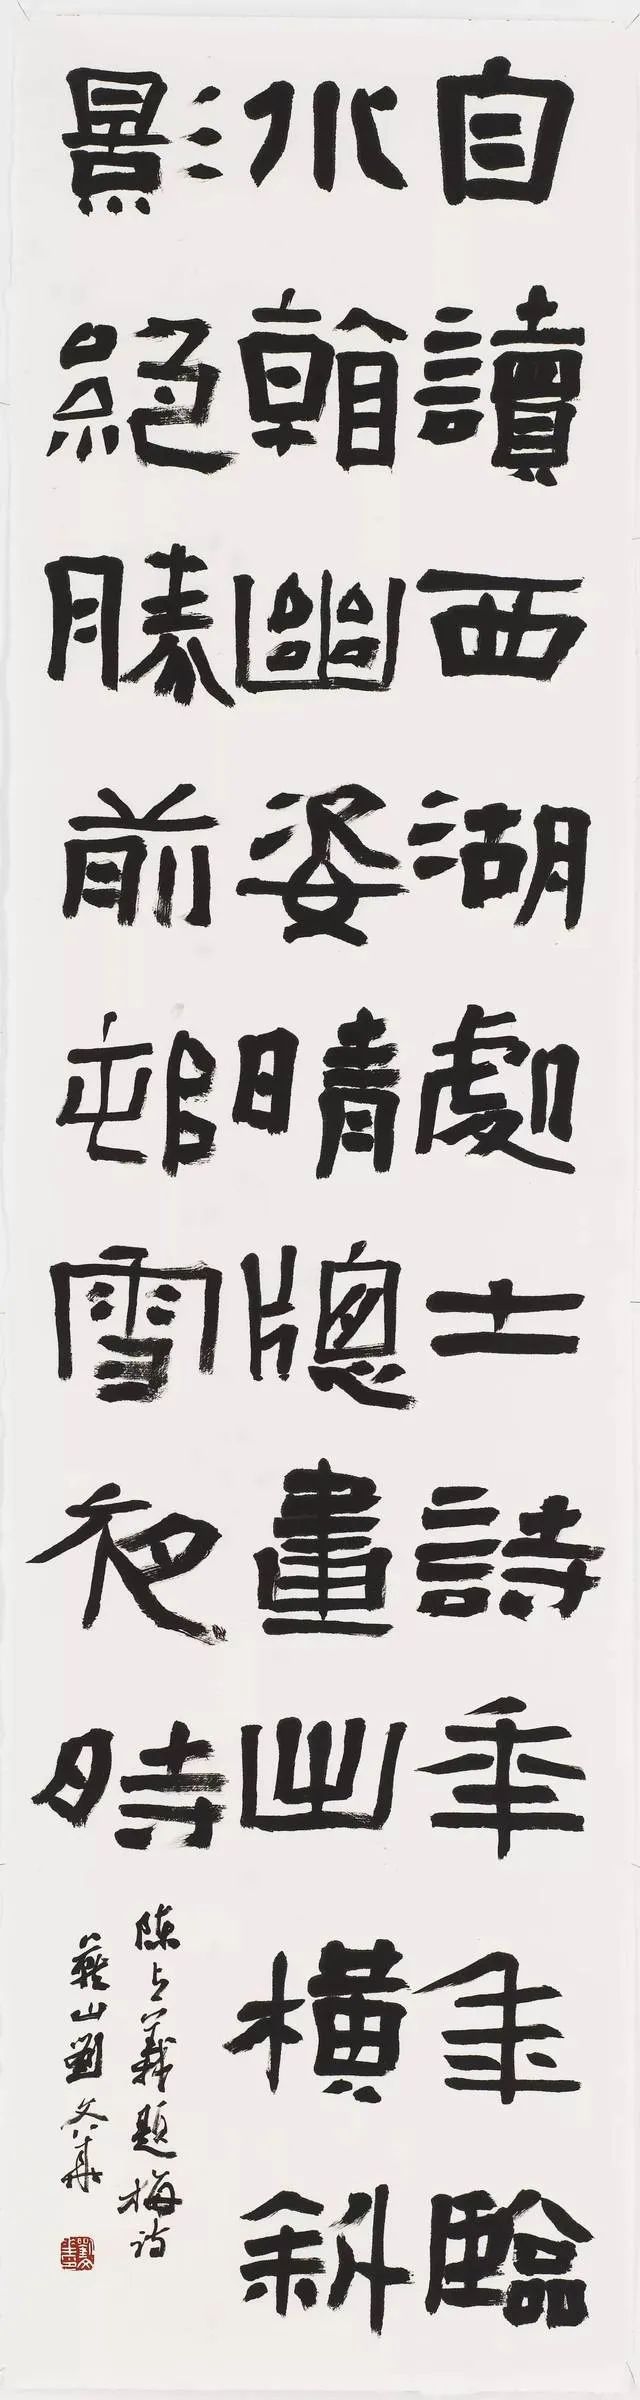 自讀西湖處士詩年年臨
水看幽姿晴牕畫出橫斜
影絕勝前邨雪夜時
陳与義題梅詩
燕山劉文華